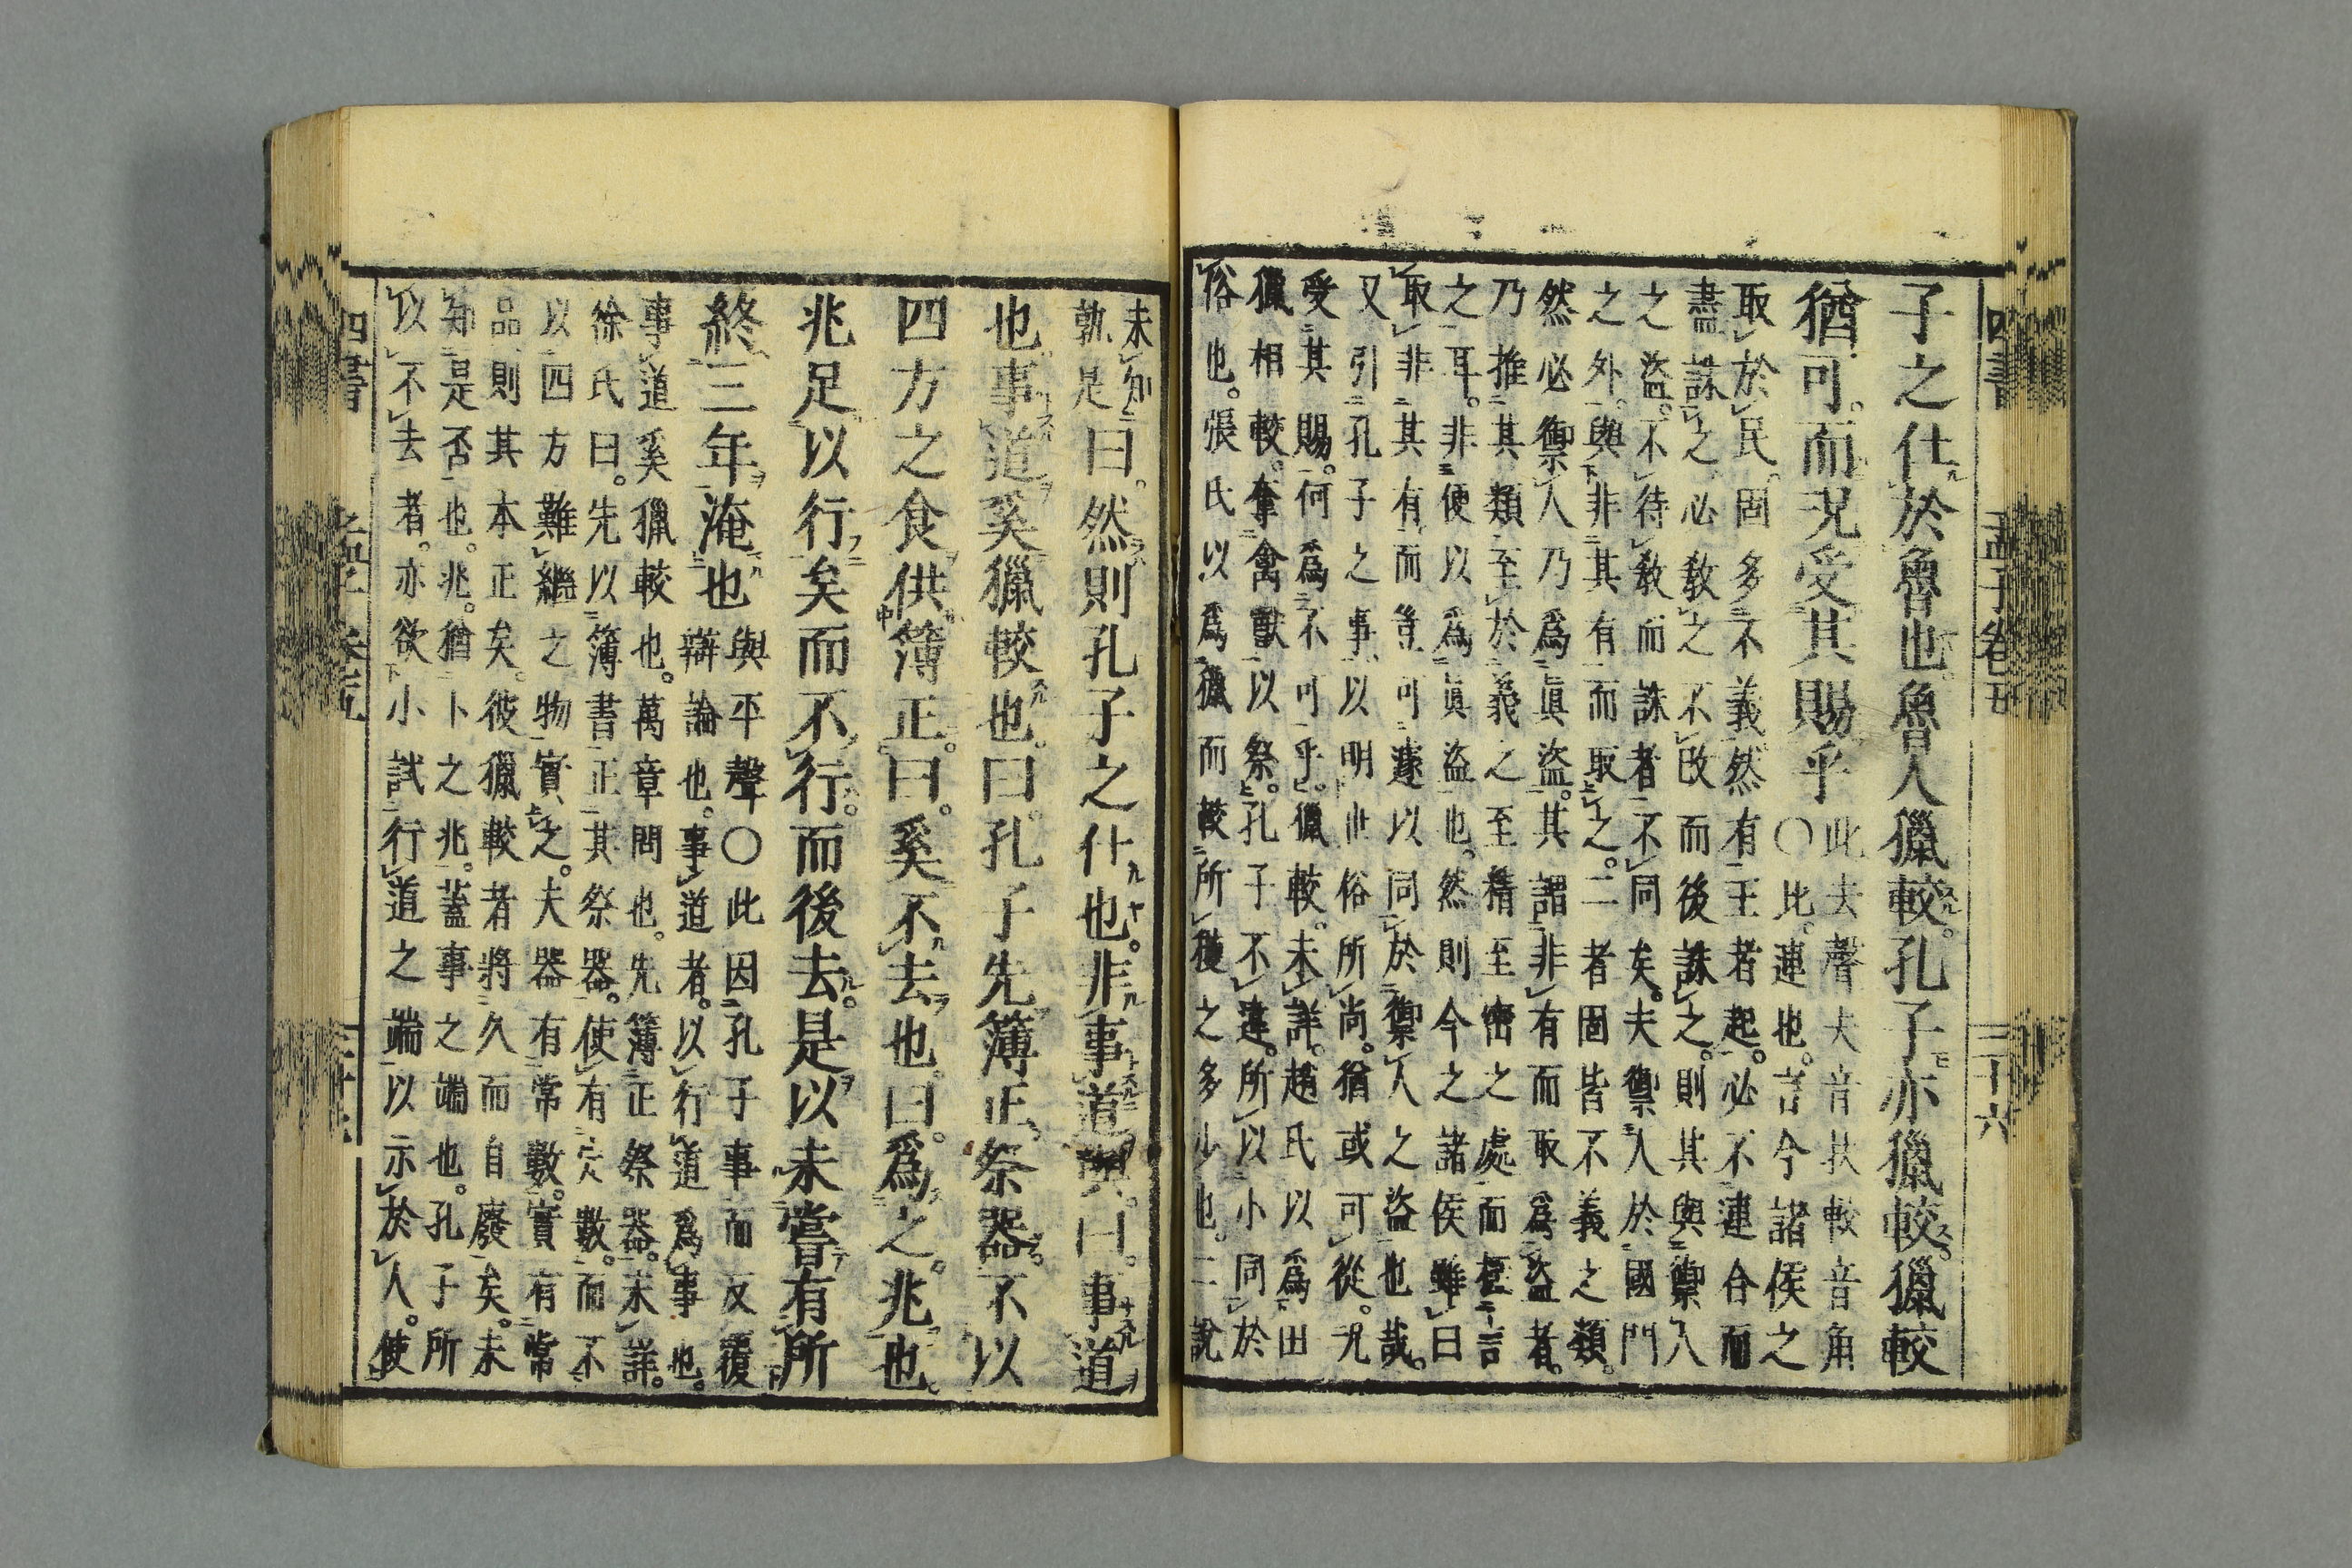 四書 孟子卷五 三十六
子之仕於魯也。魯人獵較。孔子亦獵較。獵較
猶可。而況受其賜乎
此去聲夫音扶較音角
○比。連也。言今諸侯之
取於民。固多不義。然有王者起。必不連合而
盡誅之。必敎之不改而後誅之。則其與禦人
之盜。不待敎而誅者不同矣。夫禦人於國門
之外。與非其有而取之。二者固皆不義之類。
然必禦人乃爲眞盜。其謂非有而取爲盜者。
乃推其類至於義之至精至密之處而極言
之耳。非便以爲眞盜也。然則今之諸侯雖曰
取非其有而豈可遽以同於禦人之盜也哉。
又引孔子之事以明世俗所尚。猶或可從。況
受其賜。何爲不可乎。獵較。未詳。趙氏以爲田
獵相較。奪禽獸以祭。孔子不違。所以小同於
俗也。張氏以爲獵而較所獲之多少也。二說
未知
孰是
曰。然則孔子之仕也。非事道與。曰。事道
也。事道奚獵較也。曰。孔子先簿正祭器。不以
四方之食供簿正。曰。奚不去也。曰。爲之兆也。
兆足以行矣而不行。而後去。是以未嘗有所
終三年淹也
與平聲○此因孔子事而反覆
辯論也。事道者。以行道爲事也。
事道奚獵較也。萬章問也。先簿正祭器。未詳。
徐氏曰。先以簿書正其祭器。使有定數。而不
以四方難繼之物實之。夫器有常數。實有常
品則其本正矣。彼獵較者將久而自廢矣。未
知是否也。兆。猶卜之兆。蓋事之端也。孔子所
以不去者。亦欲小試行道之端以示於人。使
四書